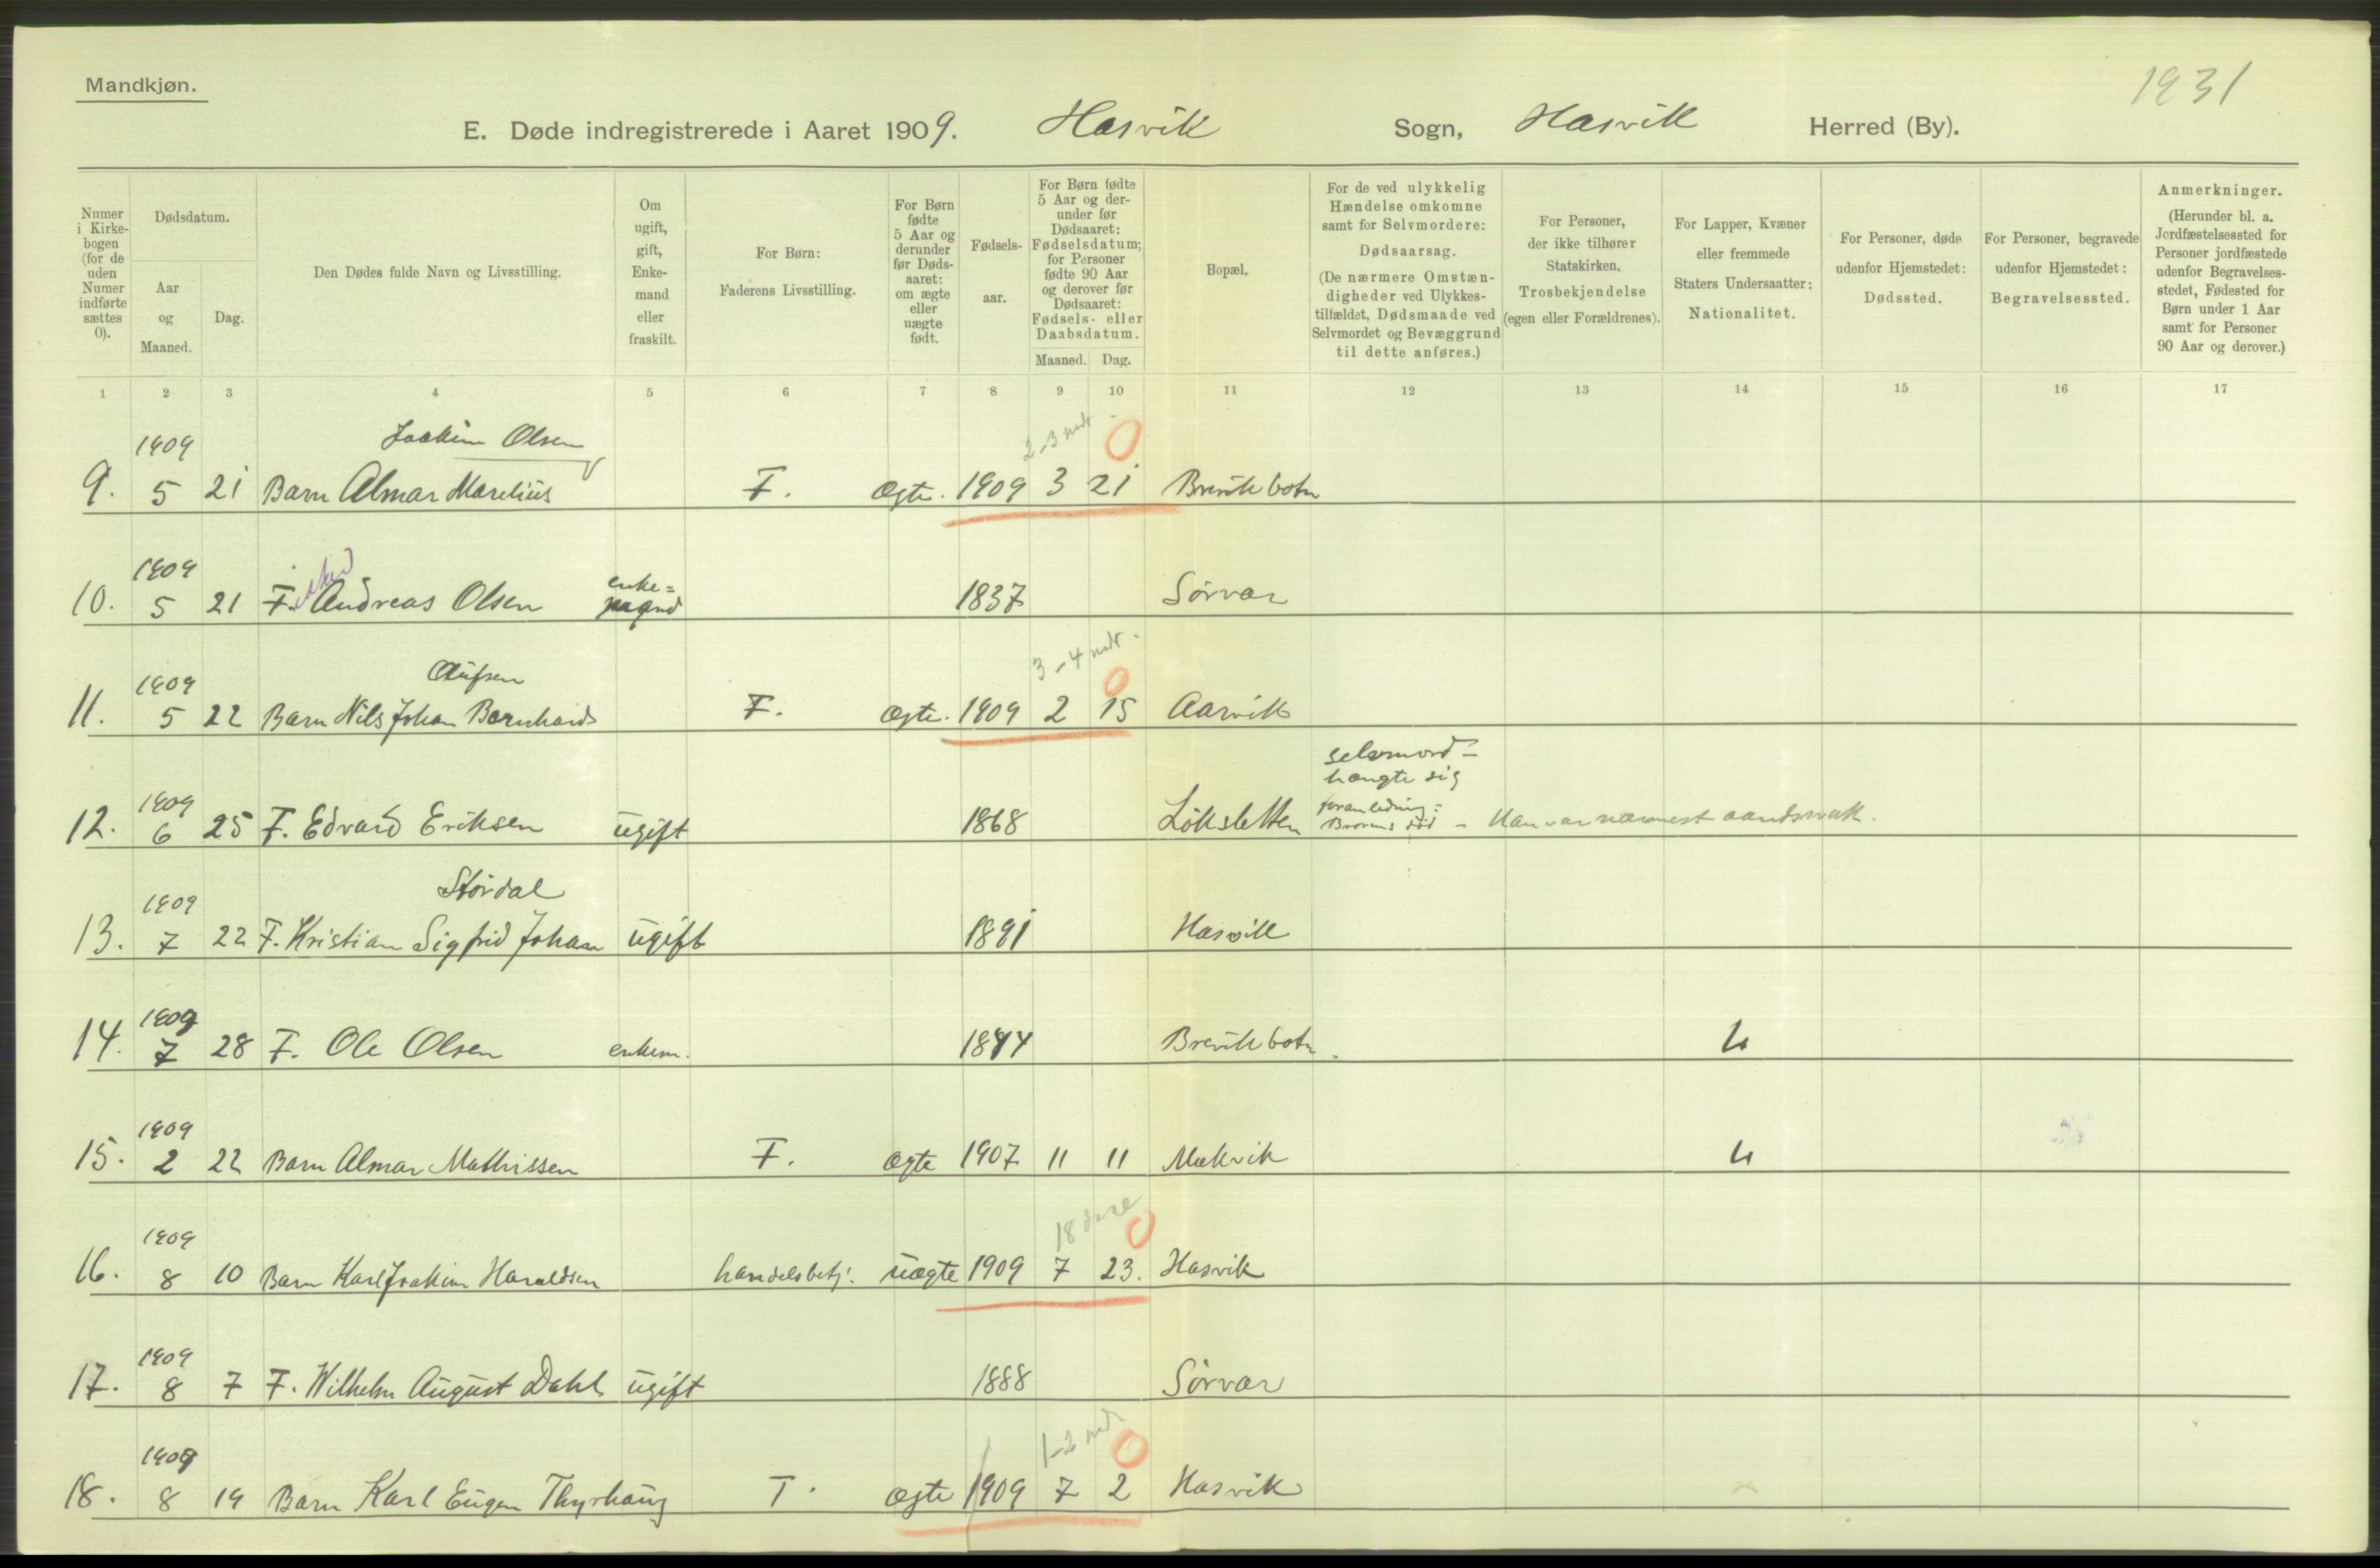 Mandkjøn.
1931
E. Døde indregistrerede i Aaret 1909. Hasvik Sogn, Hasvik Herred (By).
Numer i Kirkebogen (for de uden Numer indførte sættes 0).
Dødsdatum.
Aar og Maaned.
Dag.
Den Dødes fulde Navn og Livsstilling.
Om ugift, gift, Enkemand eller fraskilt.
For Børn: Faderens Livsstilling.
For Børn fødte 5 Aar og derunder før Dødsaaret: om ægte eller uægte født.
Fødselsaar.
For Børn fødte 5 Aar og derunder før Dødsaaret: Fødselsdatum; for Personer fødte 90 Aar og derover før Dødsaaret: Fødsels- eller Daabsdatum.
Maaned. Dag.
Bopæl.
For de ved ulykkelig Hændelse omkomne samt for Selvmordere: Dødsaarsag. (De nærmere Omstændigheder ved Ulykkestilfældet, Dødsmaade ved Selvmordet og Bevæggrund til dette anføres.)
For Personer, der ikke tilhører Statskirken, Trosbekjendelse (egen eller Forældrenes).
For Lapper, Kvæner eller fremmede Staters Undersaatter: Nationalitet.
For Personer, døde udenfor Hjemstedet: Dødssted.
For Personer, begravede udenfor Hjemstedet: Begravelsessted.
Anmerkninger. (Herunder bl. a. Jordfæstelsessted for Personer jordfæstede udenfor Begravelsesstedet, Fødested for Børn under 1 Aar samt for Personer 90 Aar og derover.)
1 2 3 4 5 6 7 8 9 10 11 12 13 14 15 16 17
1909 Joakim Olsen 2-3 mdr 0
9. 5 21 Barn Almar Marelius F. Ægte. 1909 3 21 Brevikbotn
1909 enke=
10. 5 21 F. Andreas Olsen mand 1837 Sörvær
1909 Olufsen 3-4 mdr. 0
11. 5 22 Barn Nils Johan Bernhard F. Ægte. 1909 2 15 Aarvik
selvmord -
hængte sig
1909 foranledning:
12. 6 25 F. Edvard Eriksen ugift 1868 Löksletten Brorens död - Han var nærmest aandssvak.
1909 Stördal
13. 7 22 F. Kristian Sigfrid Johan ugift 1891 Hasvik
1909
14. 7 28 F. Ole Olsen enkem. 1844 Brevikbotn.
1909
15. 2 22 Barn Almar Mathissen F. Ægte 1907 11 11 Makvik
1909 18 dage 0
16. 8 10 Barn Karl Joakim Haraldsen handelsbetj. uægte 1909 7 23. Hasvik
1909
17. 8 7 F. Wilhelm August Dahl ugift 1888 Sörvær
1909 1-2 mdr 0
18. 8 19 Barn Karl Eugen Thyrhaug T. Ægte 1909 7 2 Hasvik